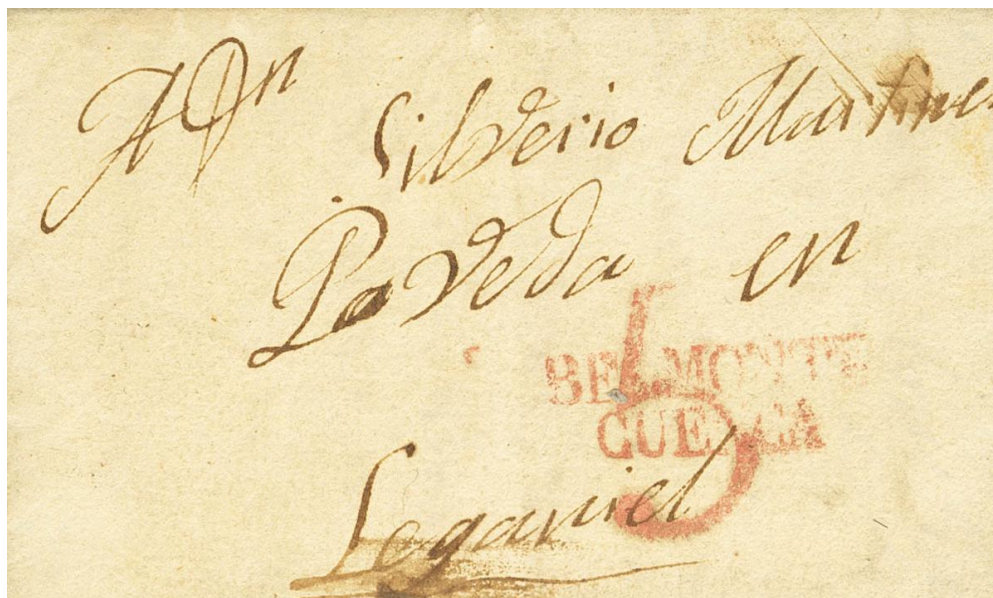 A Dn Silverio Martinez
Poveda en
5
BELMONTE
CUENCA
Leganiel